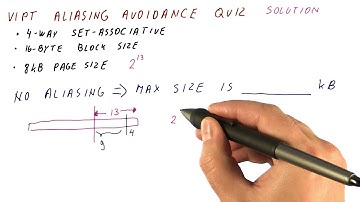 VIPT ALIASING AVOIDANCE QUIZ SOLUTION
• 4-WAY SET-ASSOCIATIVE
• 16-BYTE BLOCK SIZE
• 8kB PAGE SIZE 2^13
NO ALIASING ⇒ MAX SIZE IS ________ kB
13
9 4
2